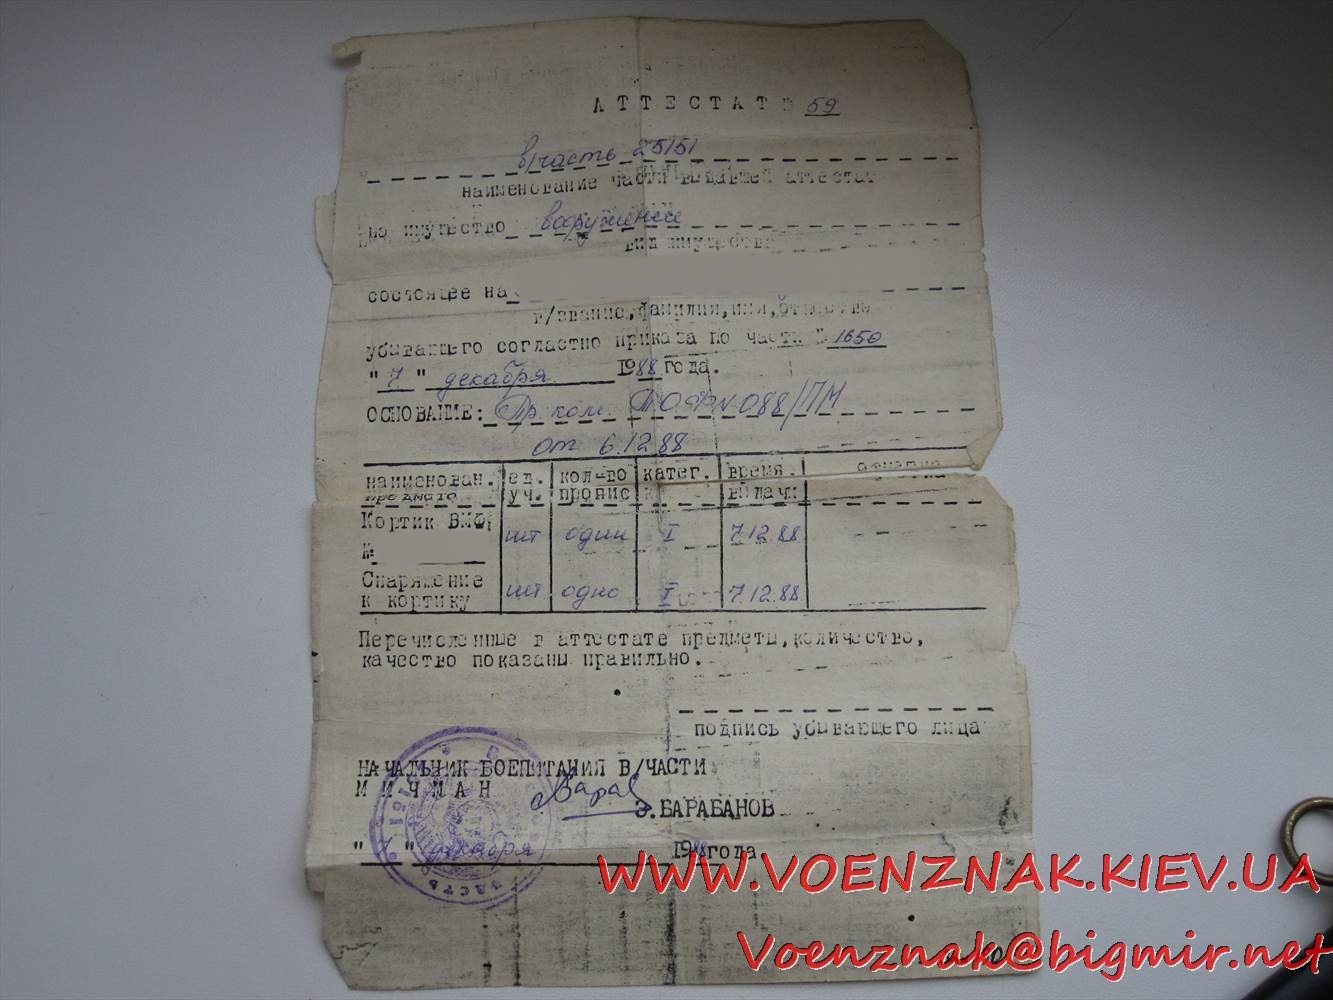 АТТЕСТАТ № 59
в/часть 25151
наименование части выдавшей аттестат
на имущество вооружение
вид имущества
состоящее на
в/звание, фамилия, имя, отчество
убывшего согласно приказа по части № 1650
"7" декабря 1988 года.
ОСНОВАНИЕ: Пр. ком. ТОФ № 088/ПМ
от 6.12.88
наименован. предмета ед. уч. кол-во пропис катег. время выдачи отметка
Кортик ВМФ, № шт один I 7.12.88
Снаряжение к кортику шт одно I 7.12.88
Перечисленные в аттестате предметы, количество,
качество показаны правильно.
подпись убывающего лица
НАЧАЛЬНИК БОЕПИТАНИЯ В/ЧАСТИ
МИЧМАН
Э.БАРАБАНОВ
"7" декабря 1988 года
WWW.VOENZNAK.KIEV.UA
Voenznak@bigmir.net